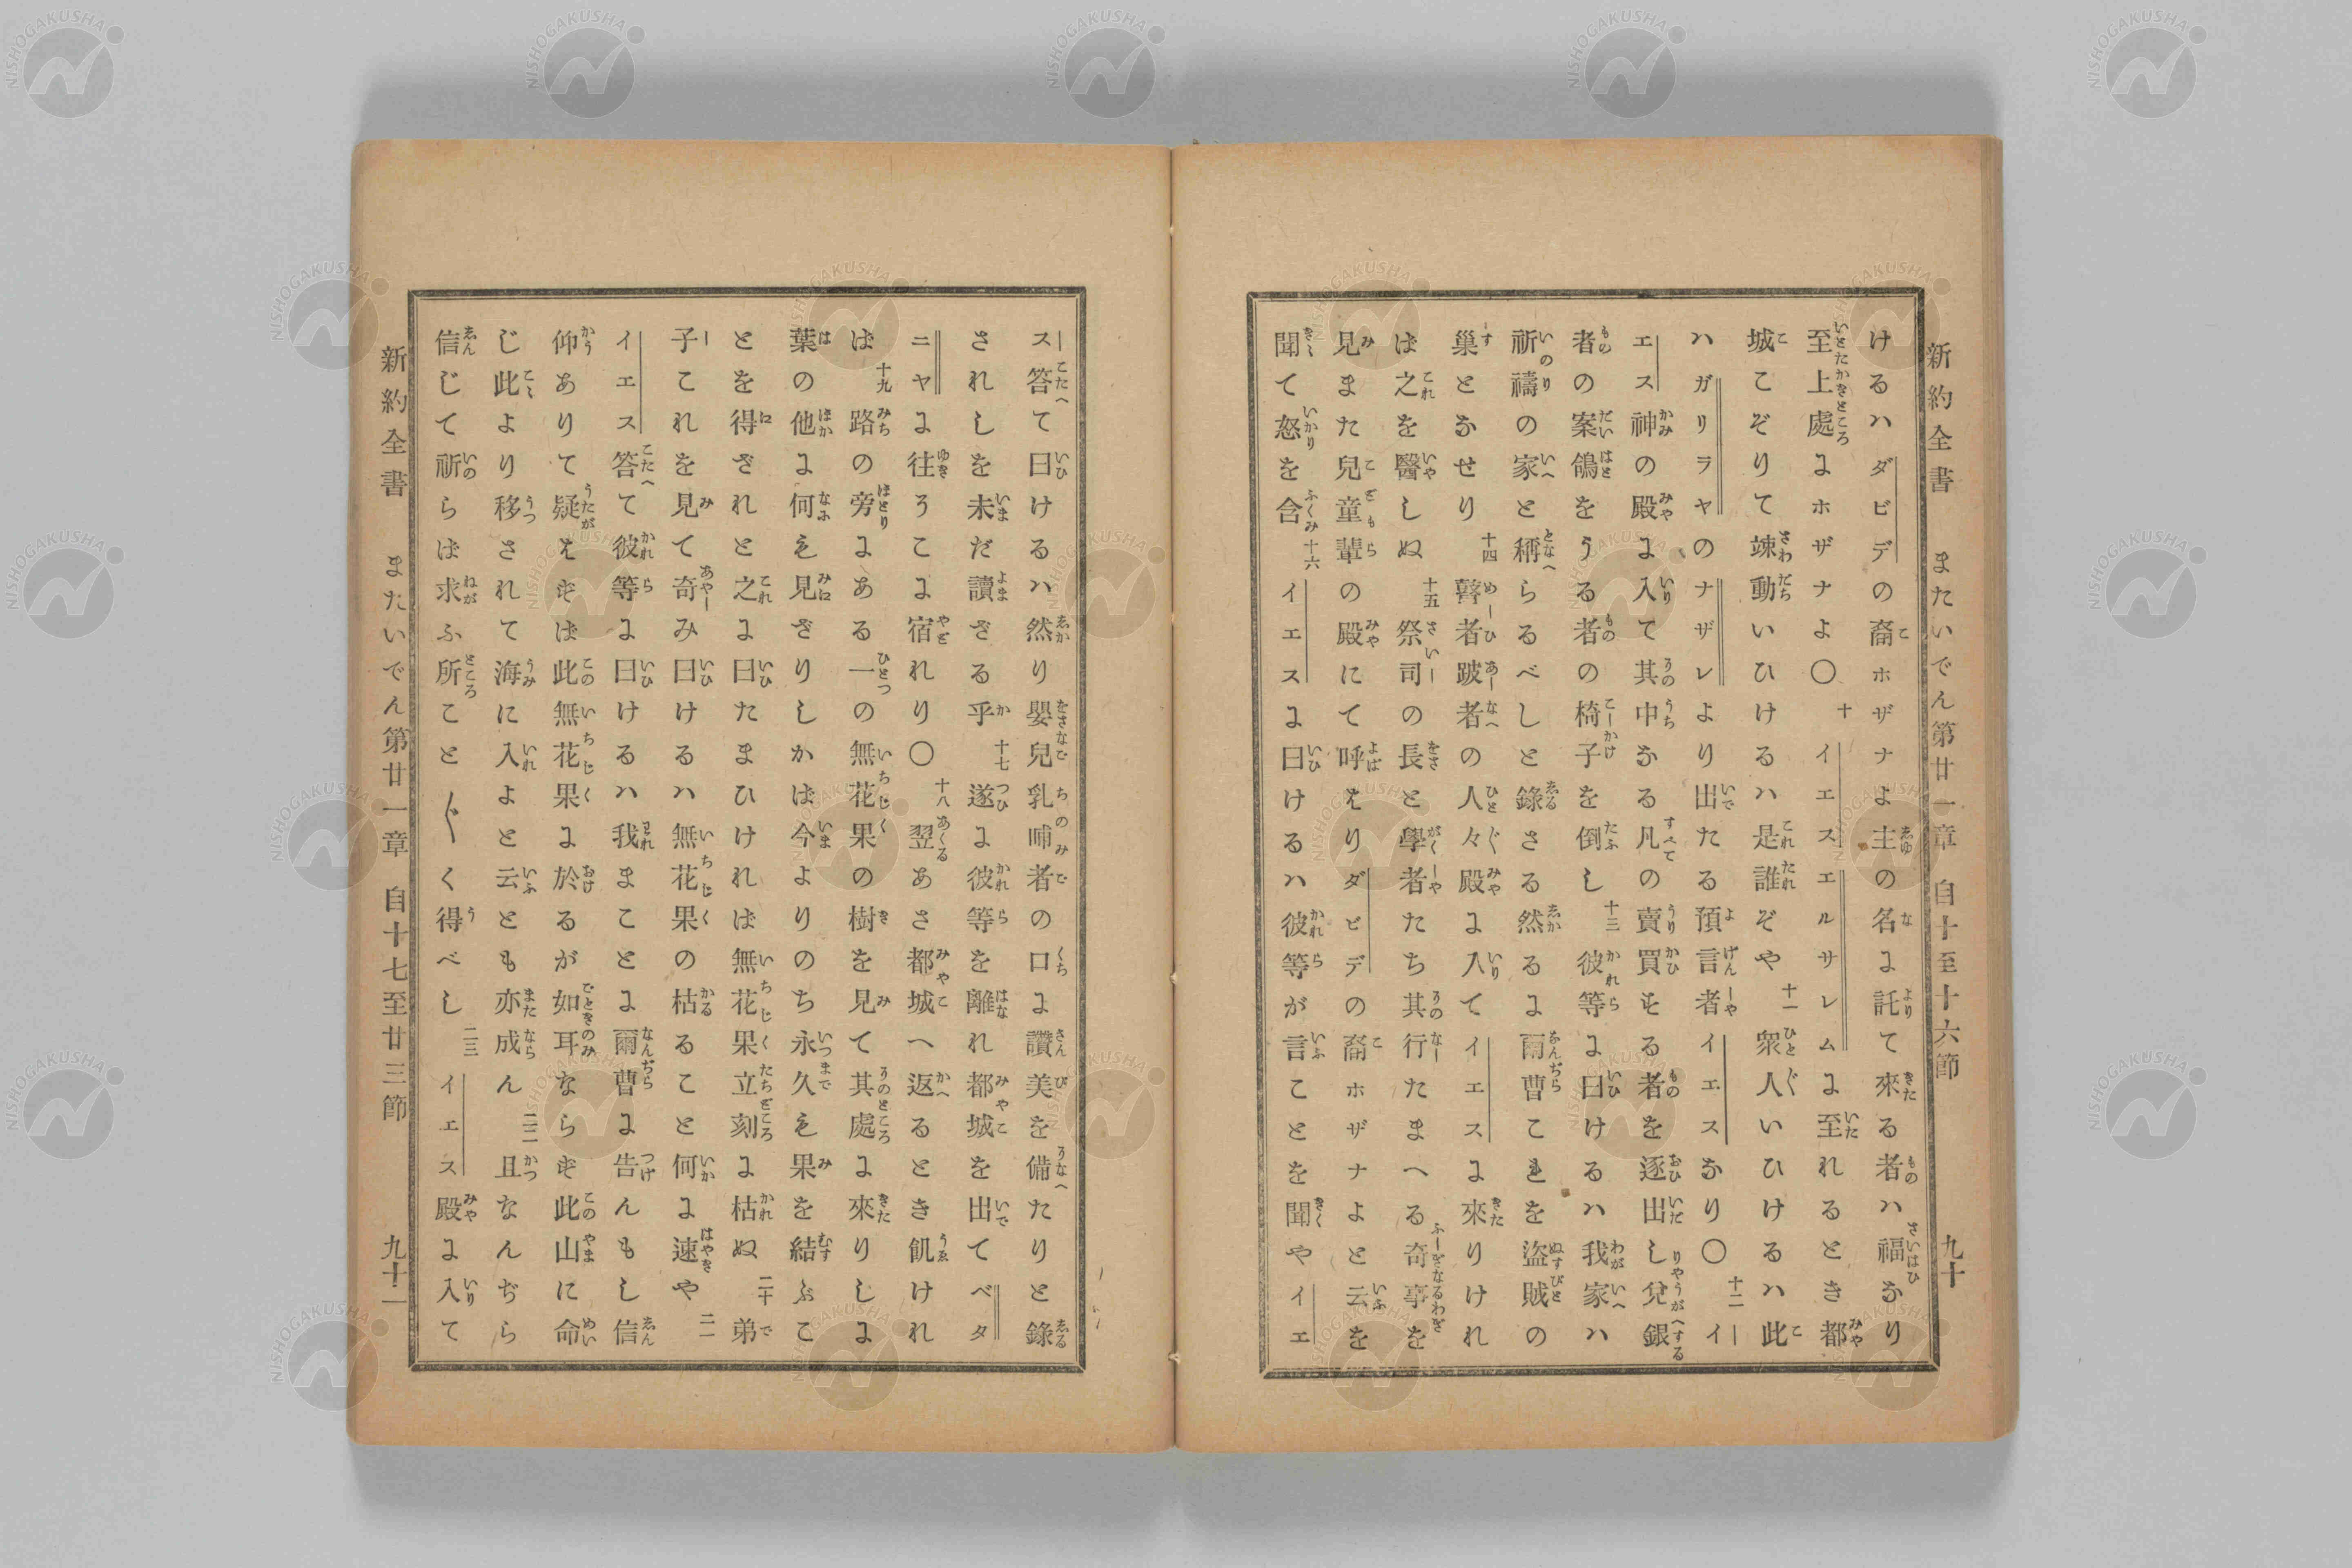 新約全書　またいでん第廿一章　自十至十六節　九十
けるハダビデの裔ホザナよ主の名に託て來る者ハ福なり
至上處にホザナよ〇十イエスエルサレムに至れるとき都
城こぞりて竦動いひけるハ是誰ぞや十一衆人いひけるハ此
ハガリラヤのナザレより出たる預言者イエスなり〇十二イ
エス神の殿に入て其中なる凡の賣買する者を逐出し兌銀
者の案鴿をうる者の椅子を倒し十三彼等に曰けるハ我家ハ
祈禱の家と稱らるべしと錄さる然るに爾曹これを盜賊の
巢となせり十四瞽者跛者の人々殿に入てイエスに來りけれ
ば之を醫しぬ十五祭司の長と學者たち其行たまへる奇事を
見また兒童輩の殿にて呼はりダビデの裔ホザナよと云を
聞て怒を含十六イエスに曰けるハ彼等が言ことを聞やイエ
ス答て曰けるハ然り嬰兒乳哺者の口に讚美を備たりと錄
されしを未だ讀ざる乎十七遂に彼等を離れ都城を出てベタ
ニヤに往そこに宿れり〇十八翌あさ都城へ返るとき飢けれ
ば十九路の旁にある一の無花果の樹を見て其處に來りしに
葉の他に何も見ざりしかば今よりのち永久も果を結ぶこ
とを得ざれと之に曰たまひければ無花果立刻に枯ぬ二十弟
子これを見て奇み曰けるハ無花果の枯ること何に速や二一
イエス答て彼等に曰けるハ我まことに爾曹に告んもし信
仰ありて疑はずば此無花果に於るが如耳ならず此山に命
じ此より移されて海に入よと云とも亦成ん二二且なんぢら
信じて祈らば求ふ所ことごとく得べし二三イエス殿に入て
新約全書　またいでん第廿一章　自十七至廿三節　九十一
NISHOGAKUSHA